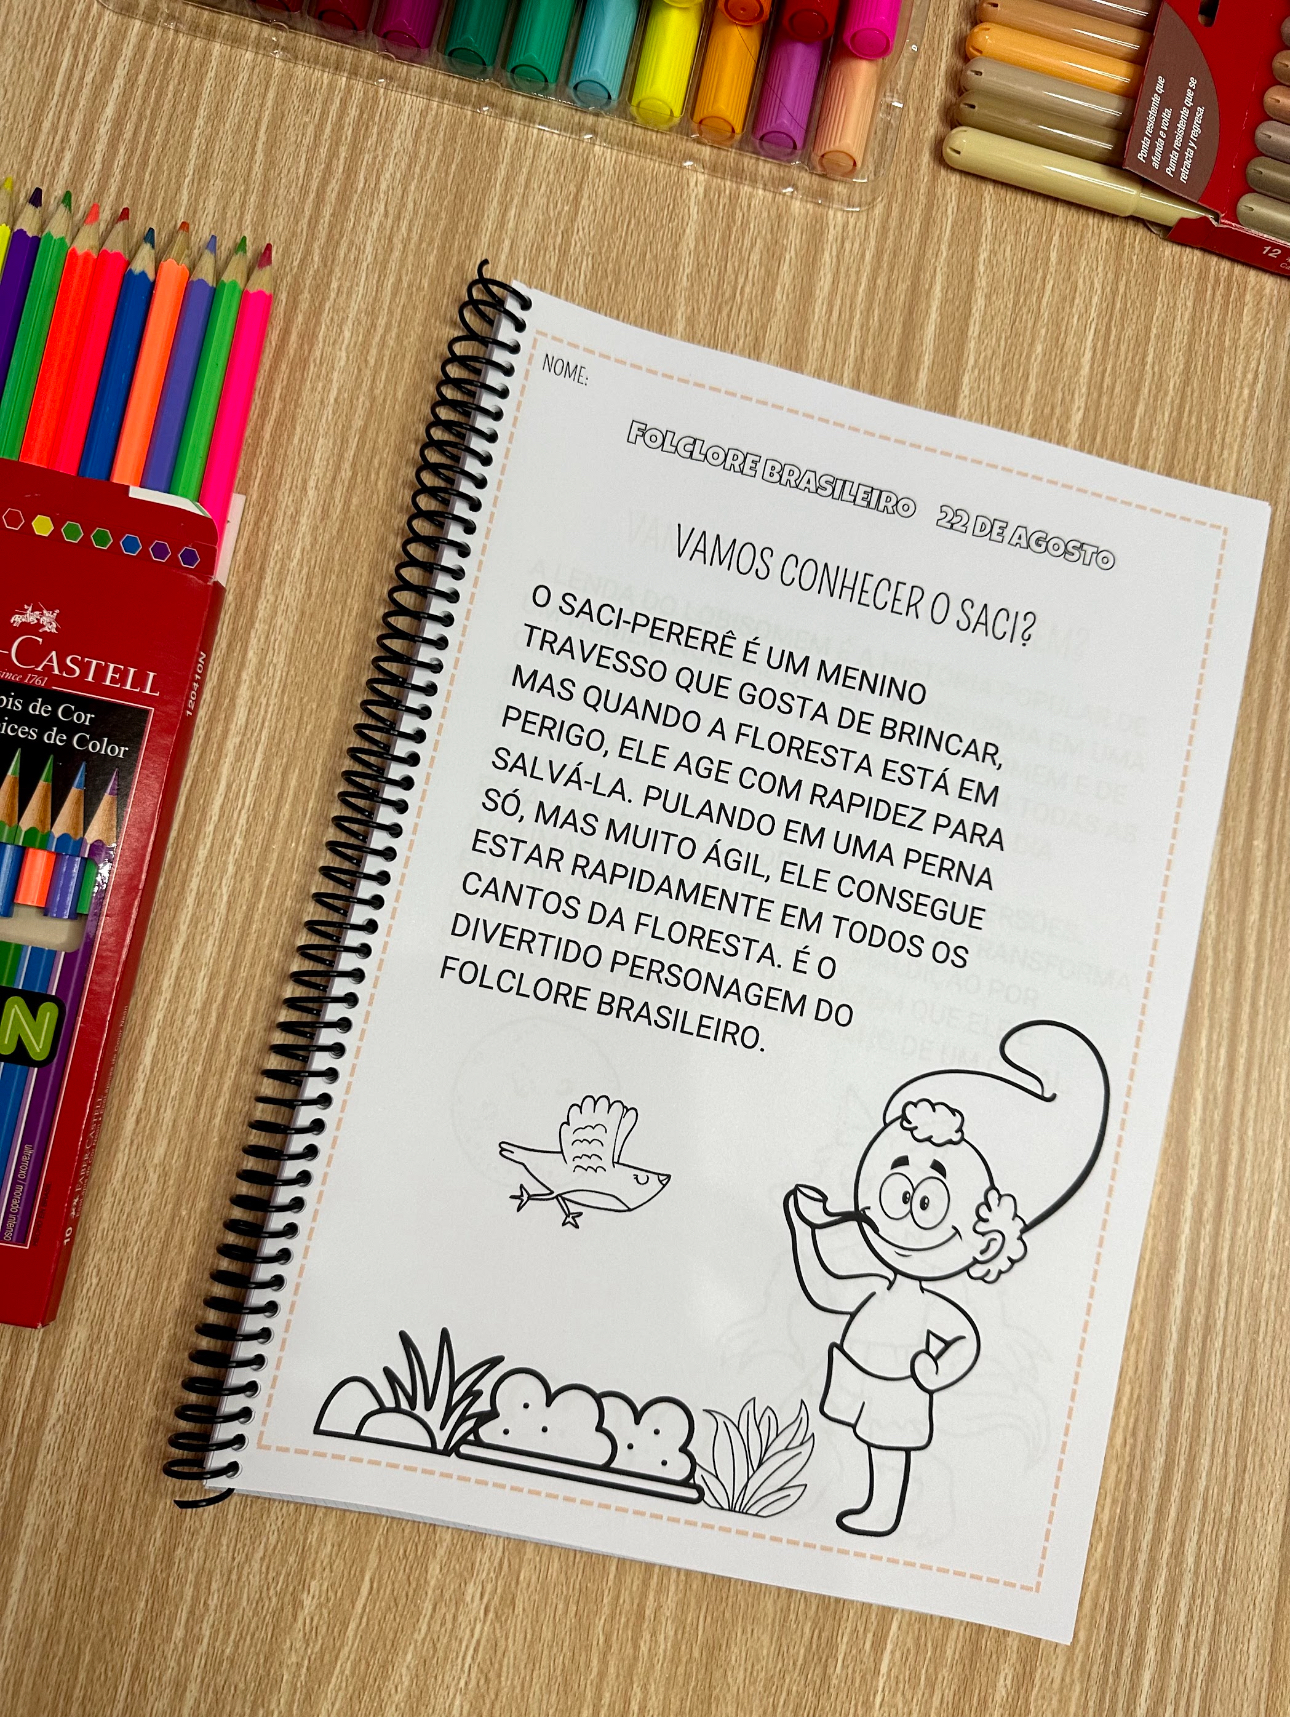 Ponta resistente que
afunda e volta.
Punta resistente que se
retracta y regresa.
12
NOME:
FOLCLORE BRASILEIRO 22 DE AGOSTO
VAMOS CONHECER O SACI?
O SACI-PERERÊ É UM MENINO
TRAVESSO QUE GOSTA DE BRINCAR,
MAS QUANDO A FLORESTA ESTÁ EM
PERIGO, ELE AGE COM RAPIDEZ PARA
SALVÁ-LA. PULANDO EM UMA PERNA
SÓ, MAS MUITO ÁGIL, ELE CONSEGUE
ESTAR RAPIDAMENTE EM TODOS OS
CANTOS DA FLORESTA. É O
DIVERTIDO PERSONAGEM DO
FOLCLORE BRASILEIRO.
-CASTELL
since 1761
120410N
pis de Cor
ices de Color
N
ultrarroxo / morado intenso